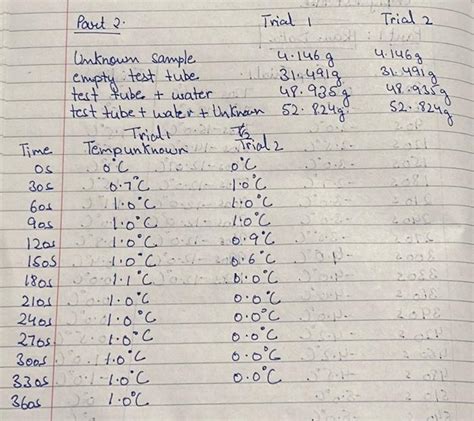 Part 2. Trial 1 Trial 2
Unknown sample 4.146g 4.146g
empty test tube 31.491g 31.491g
test tube + water 48.935g 48.935g
test tube + water + Unknown 52.824g 52.824g
Trial 1 T2
Time Tempunknown Trial 2
0s 0°C 0°C
30s 0.7°C 1.0°C
60s 1.0°C 1.0°C
90s 1.0°C 1.0°C
120s 1.0°C 0.9°C
150s 1.0°C 0.6°C
180s 1.1°C 0.0°C
210s 1.0°C 0.0°C
240s 1.0°C 0.0°C
270s 1.0°C 0.0°C
300s 1.0°C 0.0°C
330s 1.0°C 0.0°C
360s 1.0°C